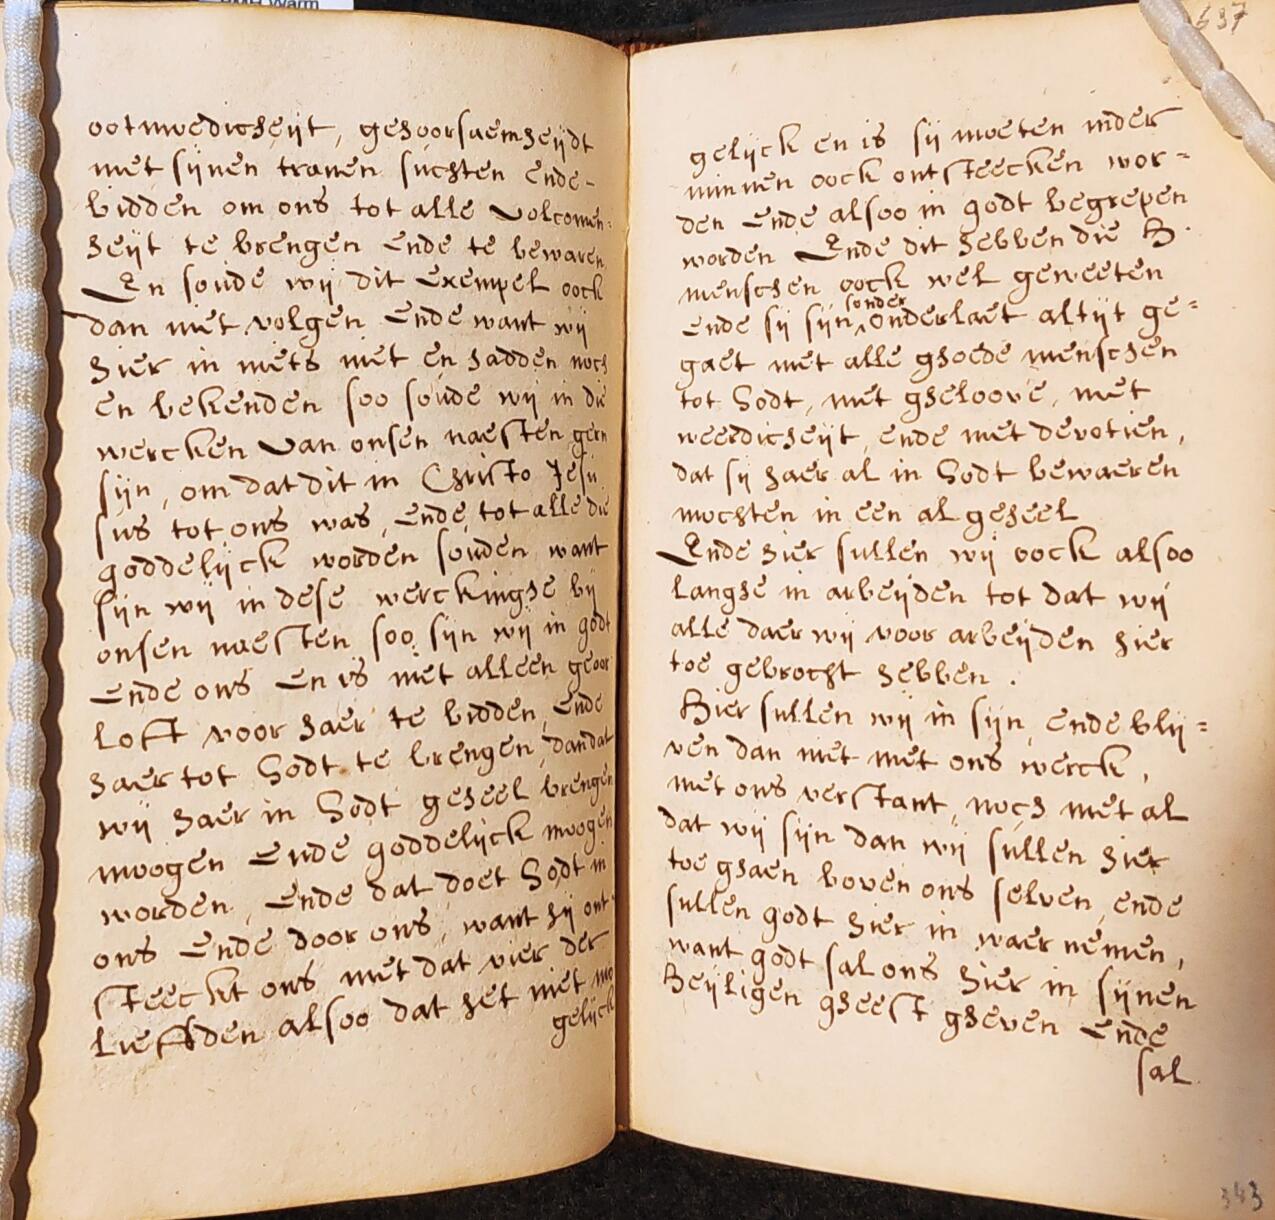 ootmoedicheijt, gehoorsaemheijdt
met sijnen tranen suchten ende-
bidden om ons tot alle volcomen=
heijt te brengen ende te bewaren
En soude wij dit exempel oock
dan niet volgen ende want wij
hier in niets niet en hadden noch
en bekenden soo soude wij in die
wercken van onsen naesten gern
sijn, om dat dit in Christo Jesu
sus tot ons was, ende tot alle die
goddelijck worden souden, want
sijn wij in dese werckinghe bij
onsen naesten soo sijn wij in godt
ende ons en is niet alleen geoor
loft voor haer te bidden, ende
haer tot Godt te brengen, dan dat
wij haer in Godt geheel brengen
moogen ende goddelijck moogen
worden, ende dat doet Godt in
ons ende door ons, want hij ont=
steeckt ons met dat vier der
liefften alsoo dat het niet mo
gelijck
637
gelijck en is sij moeten inder
minnen oock ontsteecken wor=
den ende alsoo in godt begrepen
worden Ende dit hebben die H.
menschen oock wel geweeten
sonder
ende sij sijn onderlaet altijt ge=
gaet met alle ghoede menschen
tot Godt, met gheloove, met
weerdicheijt, ende met devotien,
dat sij haer al in Godt bewaeren
mochten in een al geheel
Ende hier sullen wij oock alsoo
langhe in arbeijden tot dat wij
alle daer wij voor arbeijden hier
toe gebrocht hebben.
Hier sullen wij in sijn, ende blij=
ven dan niet met ons werck,
met ons verstant, noch met al
dat wij sijn dan wij sullen hier
toe ghaen boven ons selven, ende
sullen godt hier in waer nemen,
want godt sal ons hier in sijnen
Heijligen gheest gheven ende
sal
343